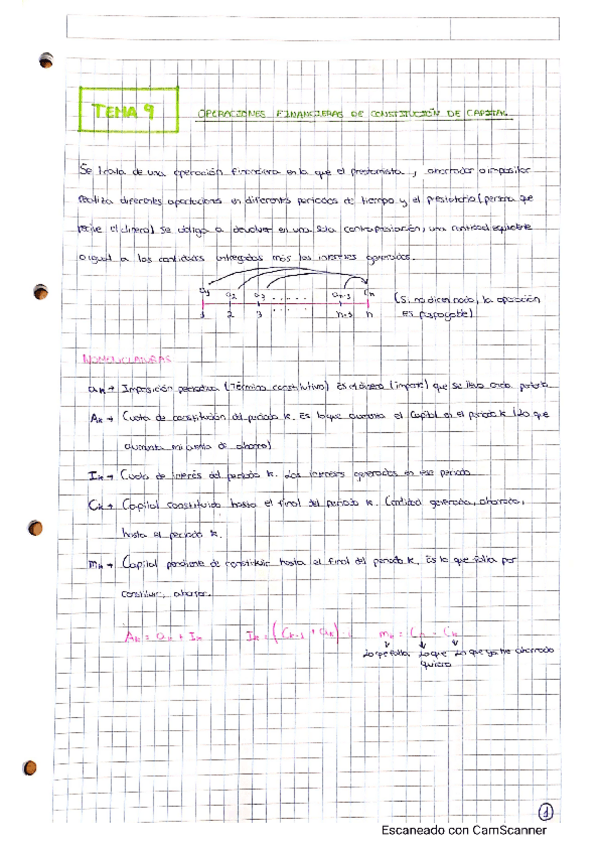 TEMA 9
OPERACIONES FINANCIERAS DE CONSTITUCIÓN DE CAPITAL.
Se trata de una operación financiera en la que el prestamista, ahorrador o impositor
realiza diferentes aportaciones en diferentes periodos de tiempo y el prestatario (persona que
recibe el dinero) se obliga a devolver en una sola contraprestación, una cantidad equivalente
o igual a las cantidades entregadas más los intereses generados.
a1 a2 a3 ...... an-1 Cn
1 2 3 ..... n-1 n
(Si no dicen nada, la operación
es prepagable).
NOMENCLATURAS
ak → Imposición periódica (Término constitutivo) Es el dinero (importe) que se lleva cada
Ak → Cuota de constitución del periodo k. Es lo que aumenta el Capital en el periodo k (lo que
aumenta mi cuenta de ahorro)
Ik → Cuota de interés del periodo k. Los intereses generados en ese periodo
Ck → Capital constituido hasta el final del periodo k. Cantidad generada, ahorrada,
hasta el periodo k.
mk → Capital pendiente de constituir hasta el final del periodo k, Es lo que falta por
constituir, ahorrar.
Ak = ak + Ik Ik = (Ck-1 + ak) · i mk = Cn - Ck
Lo que falta Lo que Lo que ya he ahorrado
quiero
1
Escaneado con CamScanner